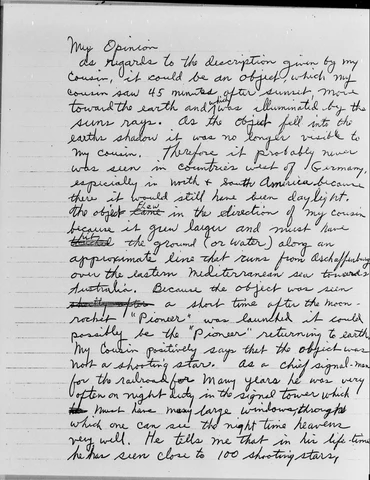 My Opinion
as regards to the description given by my
Cousin, it could be an object, which my
cousin saw 45 minutes after sunset, move
toward the earth and which was illuminated by the
suns rays. As the object fell into the
earths shadow it was no longer visible to
my cousin. Therefore it probably never
was seen in countries west of Germany,
especially in North & South America because
there it would still have been daylight.
the object came flew in the direction of my cousin
because it grew larger and must have
hit the ground (or water) along an
approximate line that runs from Aschaffenburg
over the eastern Mediterranean sea towards
Australia. Because the object was seen
a short time after the moon-
rocket "Pioneer" was launched it could
possibly be the "Pioneer" returning to earth.
My Cousin positively says that the object was
not a shooting star. As a Chief signal-man
for the railroad for many years he was very
often on night duty in the signal tower which
must have many large windows through
which one can see the night time heavens
very well. He tells me that in his life-time
he has seen close to 100 shooting stars,